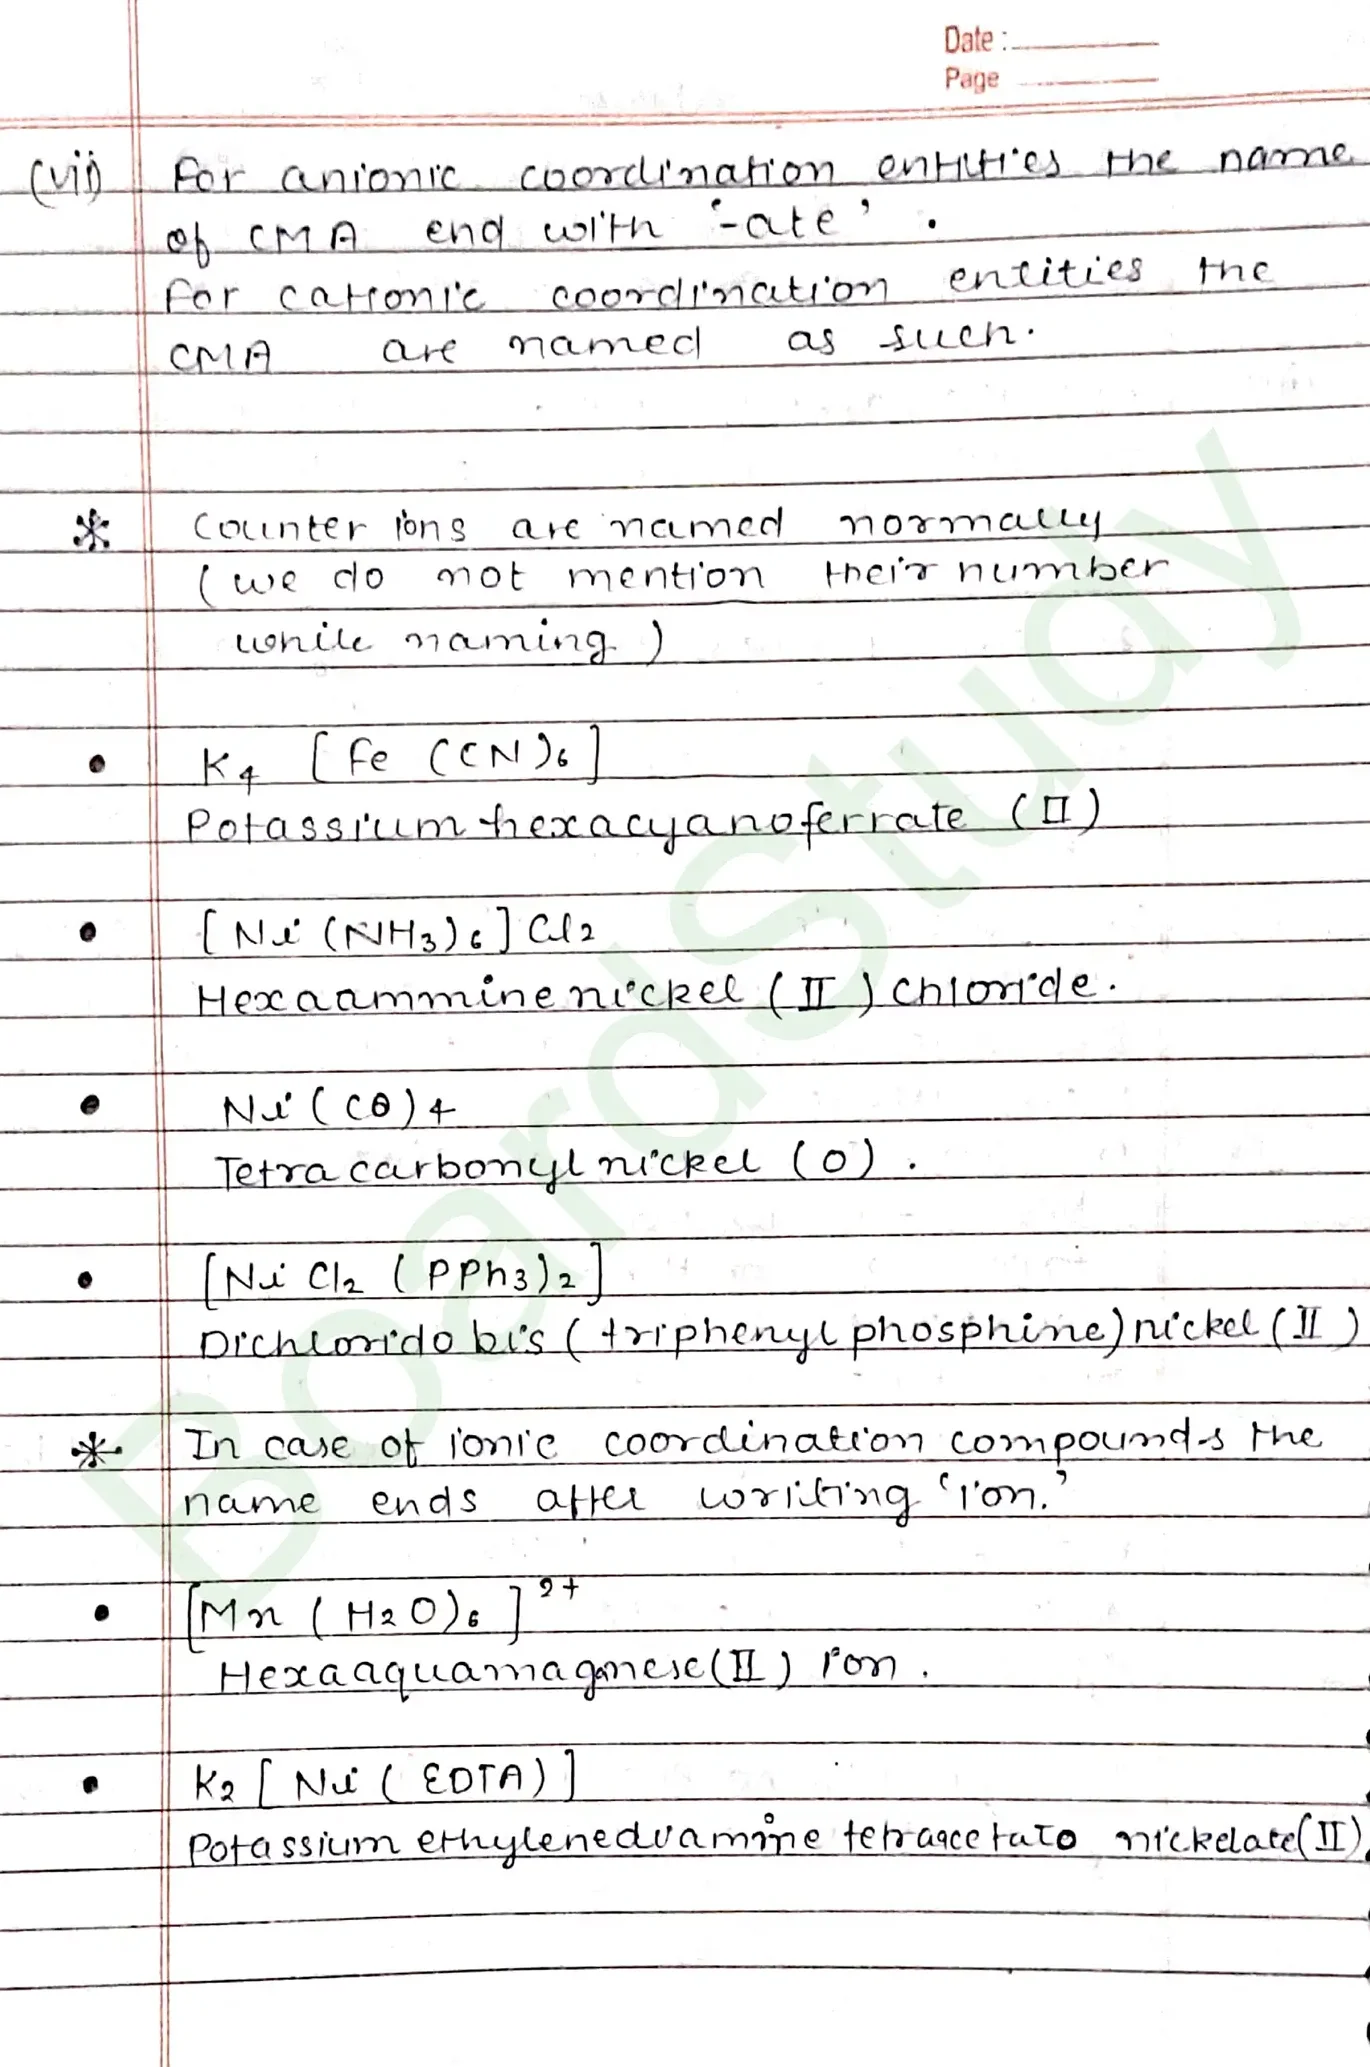 Date :
Page
(vii) For anionic coordination entities the name
of CMA end with '-ate' .
For cationic coordination entities the
CMA are named as such.
* Counter ions are named normally
(we do not mention their number
while naming)
• K4 [Fe (CN)6]
Potassium hexacyanoferrate (II)
• [Ni (NH3)6] Cl2
Hexaamminenickel (II) chloride.
• Ni (CO)4
Tetracarbonylnickel (0) .
• [NiCl2 (PPh3)2]
Dichlorido bis (triphenylphosphine) nickel (II)
* In case of ionic coordination compounds the
name ends after writing 'ion.'
• [Mn (H2O)6]2+
Hexaaquamaganese(II) ion .
• K2 [Ni (EDTA)]
Potassium ethylenediamine tetraacetato nickelate(II)
BoardStudy